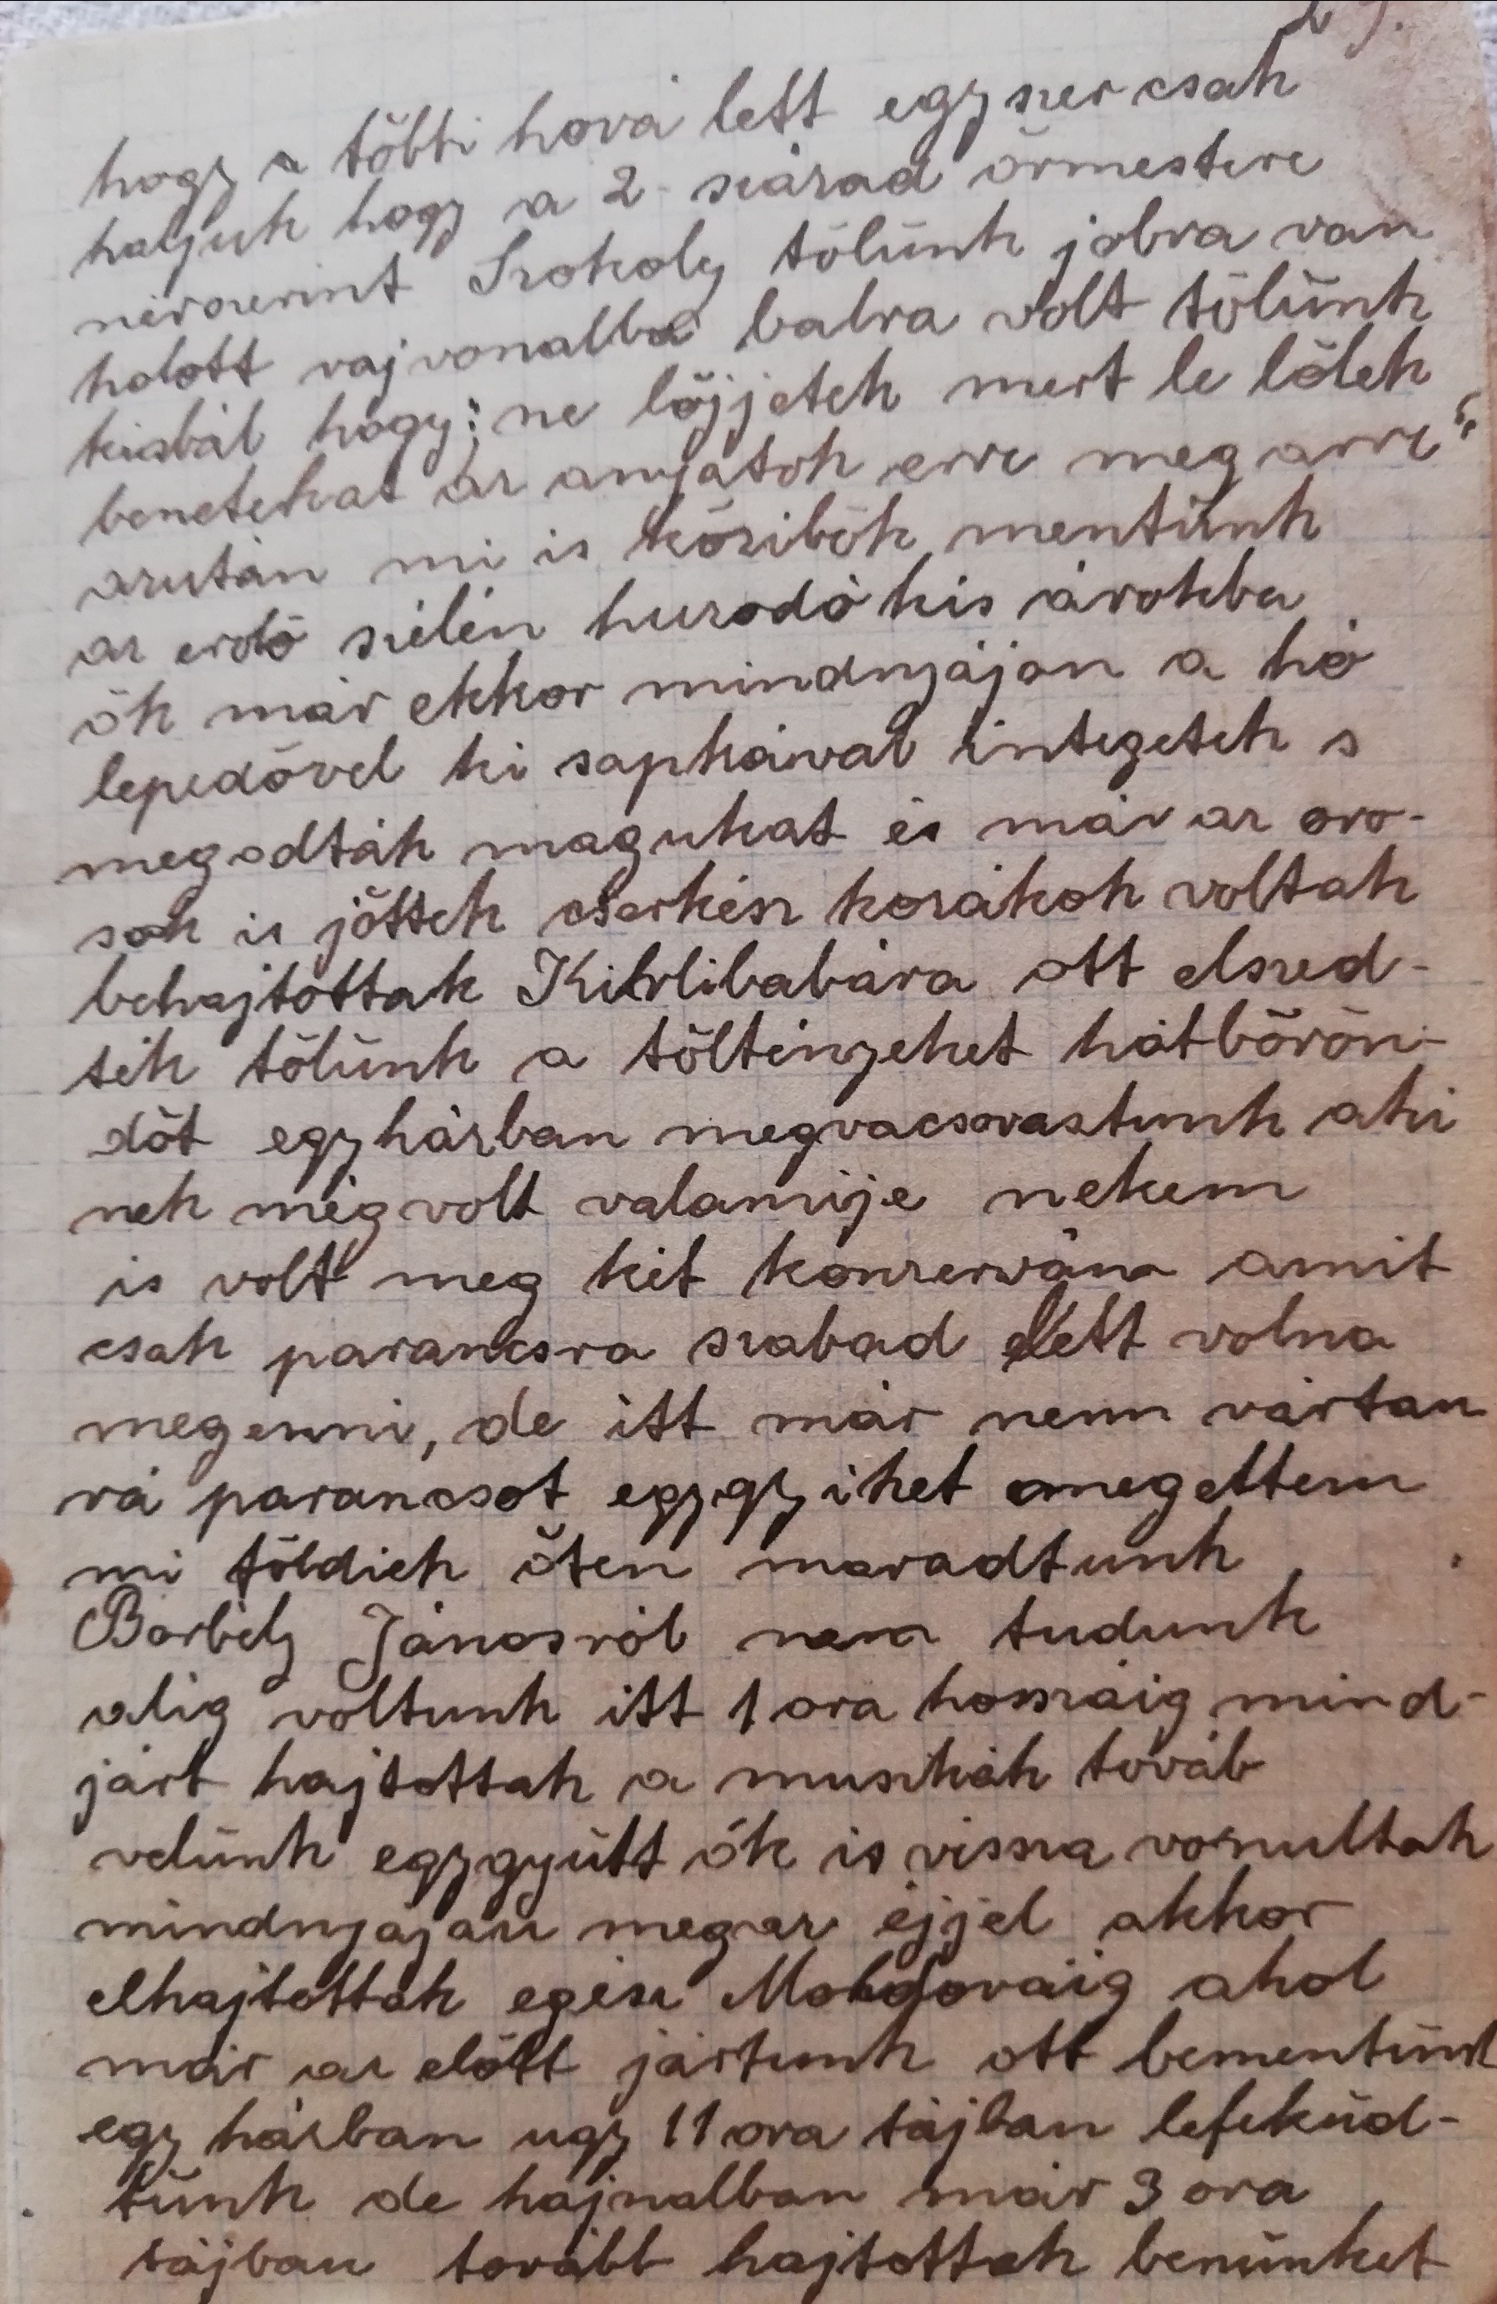 29.
hogy a többi hová lett egyszer csak
haljuk hogy a 2. század őrmestere
névszerint Szokoly tőlünk jobra van
holott rajvonalba balra volt tőlünk
kiabál hogy; ne lőjjetek mert le lőlek
beneteket az anyátok erre meg arra"
azután mi is közibök mentünk
az erdő szélén huzodó kis árokba
ők már ekkor mindnyájan a hó
lepedővel ki sapkával integetek s
megadták magukat és már az oro-
sok is jöttek cserkész kozákok voltak
behajtottak Kirlibabára ott elszed-
ték tőlünk a töltényeket hátbőrön-
döt egy házban megvacsoráztunk aki
nek még volt valamije nekem
is volt meg két konzervám amit
csak parancsra szabad lett volna
megenni, de itt már nem vártam
rá parancsot egygyiket megettem
mi földiek öten maradtunk
Borbély Jánosról nem tudunk
alig voltunk itt 1 ora hosszáig mind-
járt hajtottak a muszkák továb
velünk egygyütt ők is vissza vonultak
mindnyájan megaz éjjel akkor
elhajtottak egész Moldováig ahol
már az előtt jártunk ott bementünk
egy házban ugy 11 ora tájban lefeküd-
tünk de hajnalban már 3 ora
tájban tovább hajtottak benünket